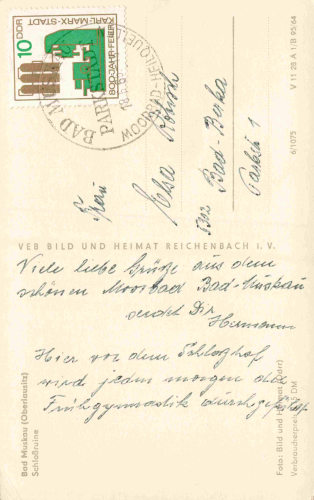 10 DDR
KARL-MARX-STADT
800-JAHR-FEIER
BAD MUSKAU
PARKSTADT
MOORBAD-HEILQUELLE
Frau
Elsa
5302 Bad-Berka
Parkstr 1
VEB BILD UND HEIMAT REICHENBACH I. V.
Viele liebe Grüße aus dem
schönen Moorbad Bad-Muskau
sendet Dir
Hermann
Hier vor dem Schloßhof
wird jeden morgen die
Frühgymnastik durchgeführt
Bad Muskau (Oberlausitz)
Schloßruine
Foto: Bild und Heimat
Verbraucherpreis DM
V 11 28 A 1/B 95/64
6/1075